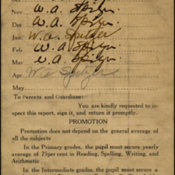 W. A. Spitzer
Dec W. A. Spitzer
Jan W. A. Spitzer
Feb W. A. Spitzer
Mar W. A. Spitzer
Apr W. A. Spitzer
May
To Parents and Guardians:
You are kindly requested to
spect this report, sign it, and return it promptly.
PROMOTION
Promotion does not depend on the general average of
all the subjects
In the Primary grades, the pupil must secure yearly
average of 75per cent in Reading, Spelling, Writing, and
Arithmetic
In the Intermediate grades, the pupil must secure a